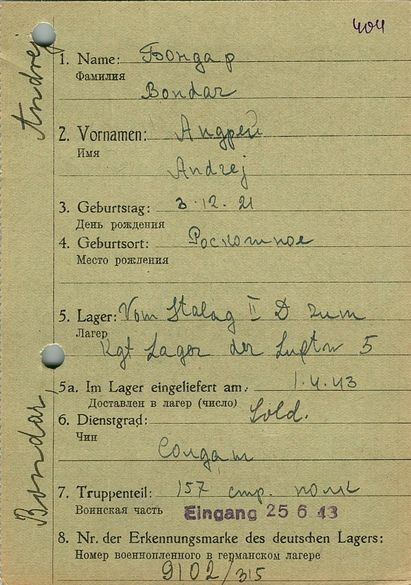 404
Andrej
1. Name: Бондар
Фамилия
Bondar
2. Vornamen: Андрей
Имя
Andrej
3. Geburtstag: 3. 12. 21
День рождения
4. Geburtsort: Роскошное
Место рождения
5. Lager: Vom Stalag II D zum
Лагер
Kgf Lager der Luftw 5
5a. Im Lager eingeliefert am: 1.4.43
Доставлен в лагер (число)
6. Dienstgrad: Sold.
Чин
Солдат
7. Truppenteil: 157 стр. полк
Воинская часть
Eingang 25 6 43
8. Nr. der Erkennungsmarke des deutschen Lagers:
Номер военнопленного в германском лагере
9102/315
Bondar